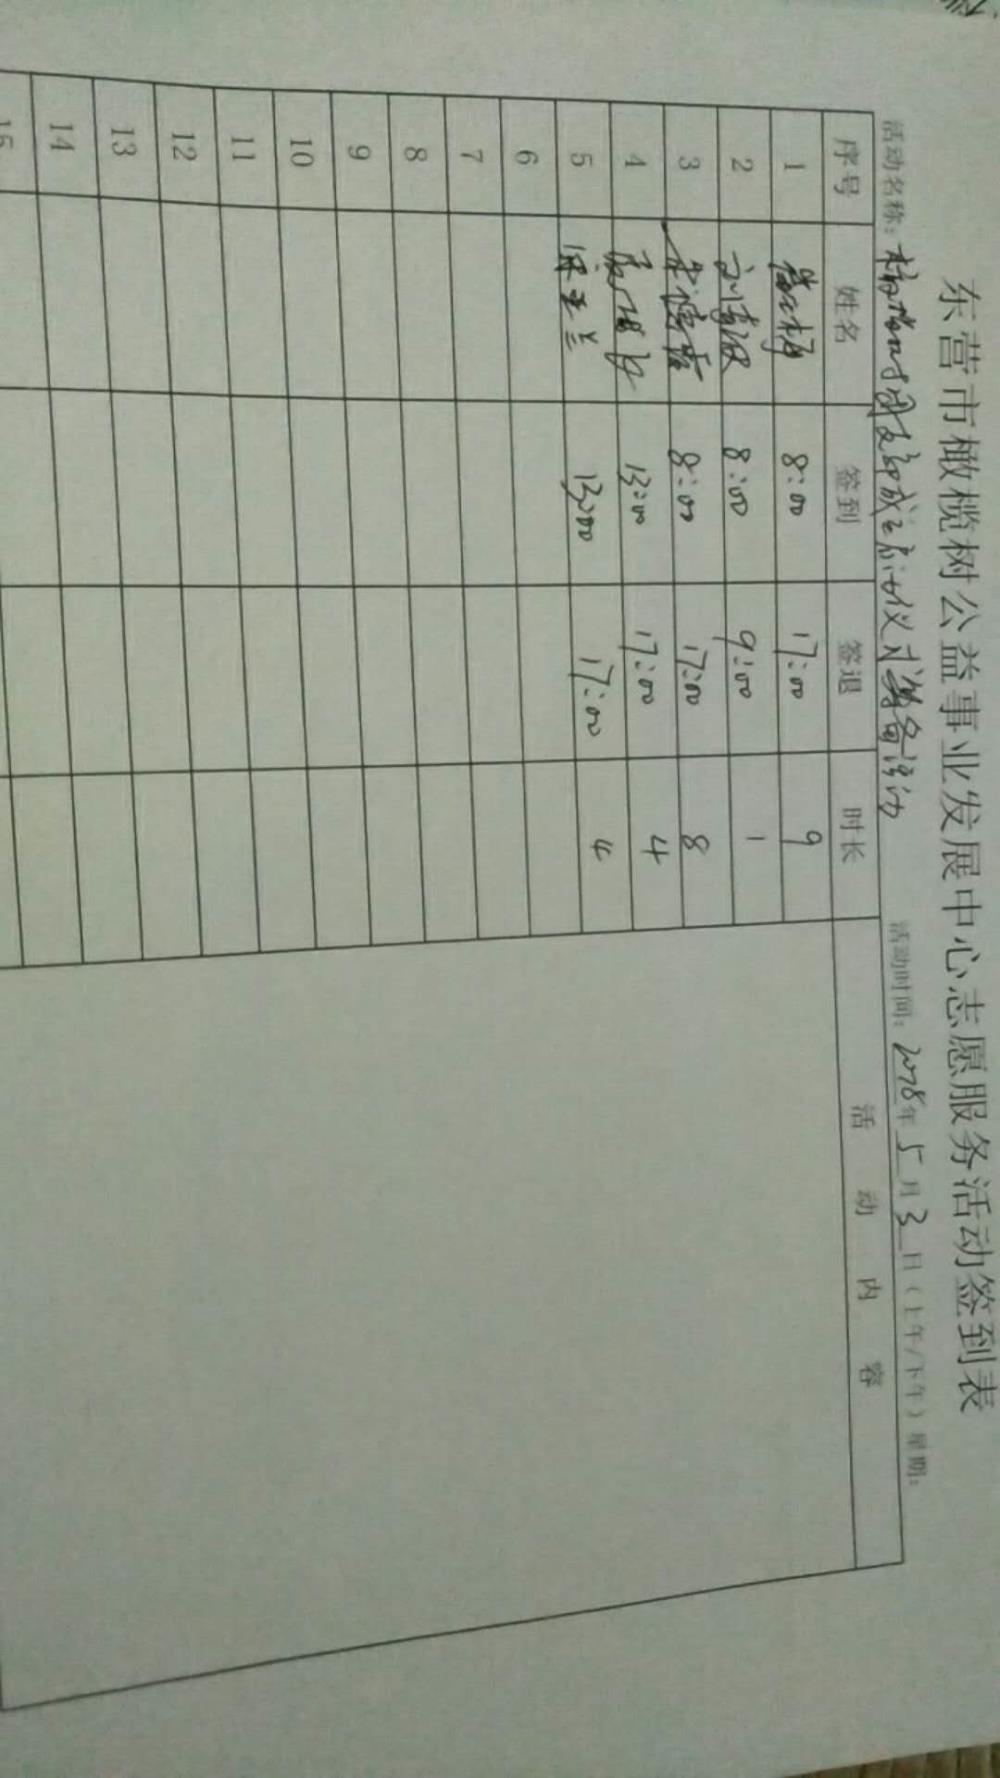 东营市橄榄树公益事业发展中心志愿服务活动签到表
活动名称: 团支部成立仪式筹备活动 活动时间: 2018年5月3日(上午/下午)星期:
序号 姓名 签到 签退 时长 活动内容
1 8:00 17:00 9
2 8:00 9:00 1
3 8:00 17:00 8
4 13:00 17:00 4
5 13:00 17:00 4
6
7
8
9
10
11
12
13
14
15